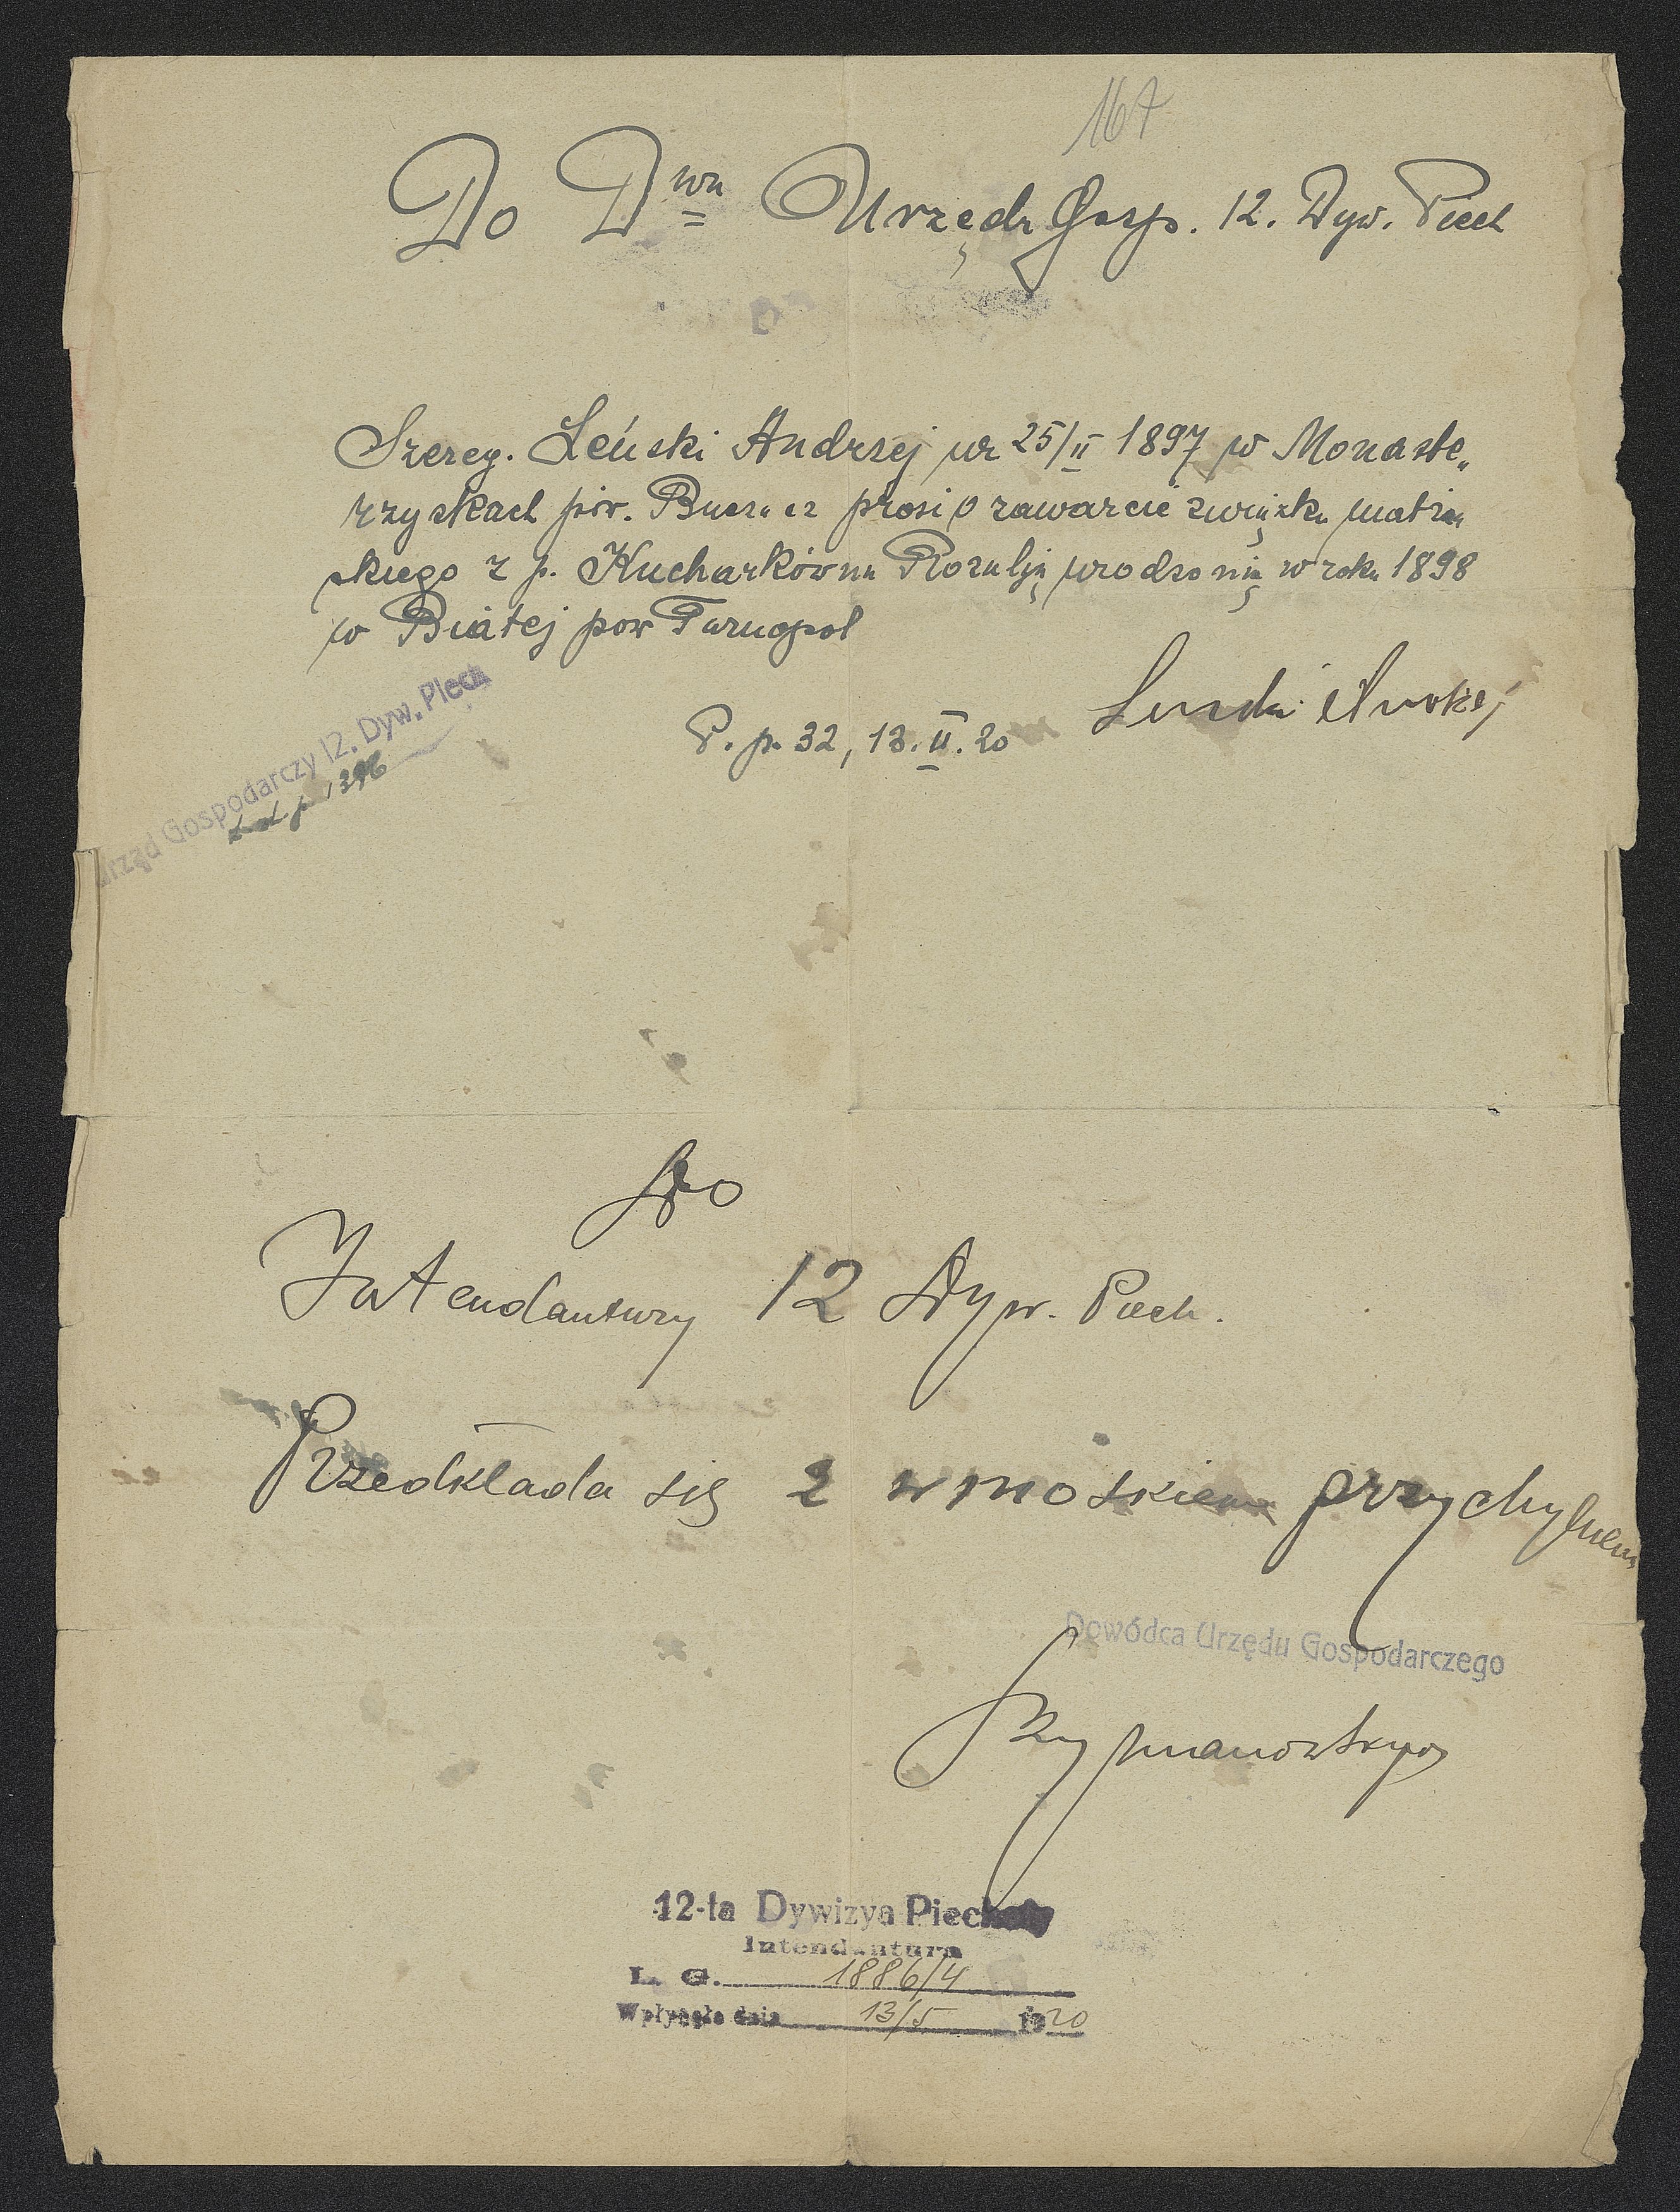 167
Do Dwa Urzędu Gosp. 12. Dyw. Piech
Szereg. Leński Andrzej ur 25/II 1897 w Monaste„
rzyskach pow. Buczacz prosi o zawarcie związku małżeń
skiego z p. Kucharkówną Rozalją urodzoną w roku 1898
w Białej pow Tarnopol
Leński Andrzej
P. p. 32, 13. II. 20
Urząd Gospodarczy 12. Dyw. Piech
1396
Do
Intendantury 12 Dyw. Piech.
Przedkłada się z wnioskiem przychylnem
Dowódca Urzędu Gospodarczego
Szymanowski
12-ta Dywizya Piechoty
Intendantura
L. G. 1886/4
Wpłynęło dnia 13/5 1920